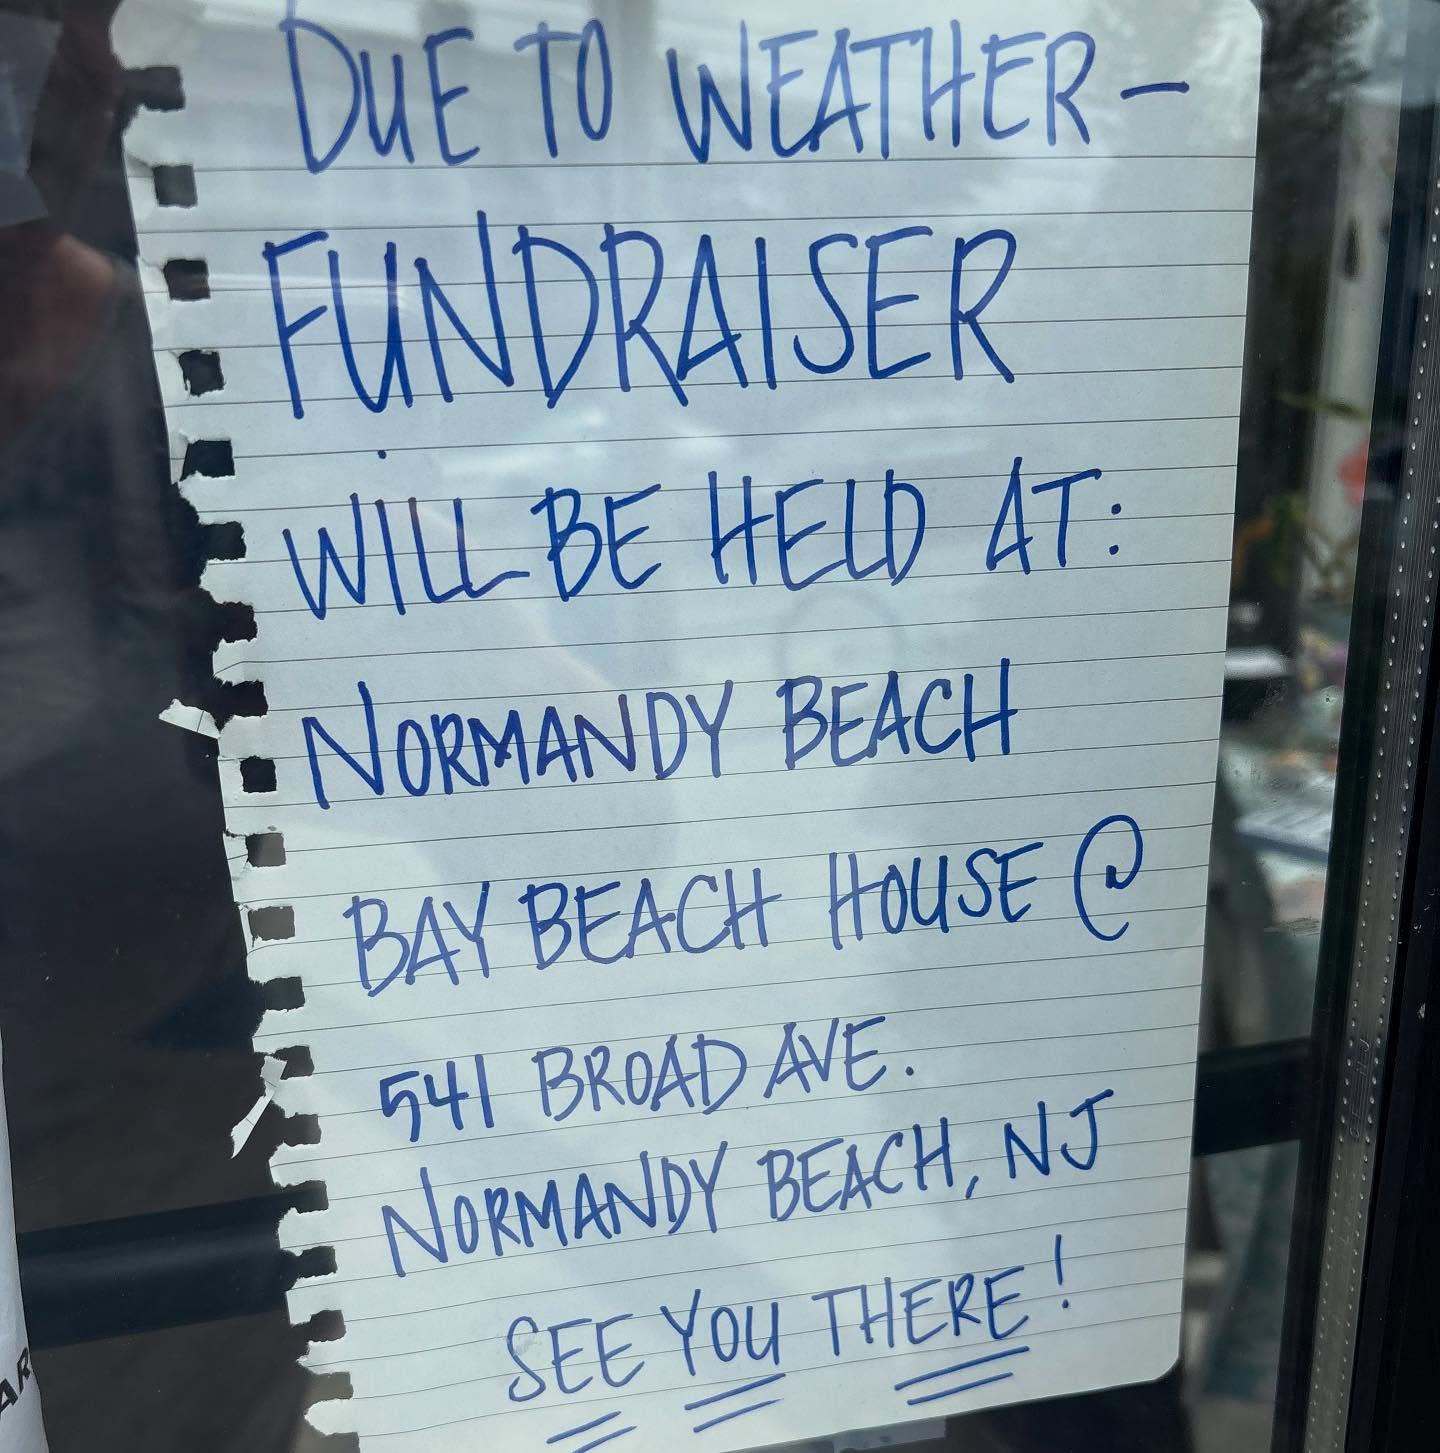 DUE TO WEATHER -
FUNDRAISER
WILL BE HELD AT:
NORMANDY BEACH
BAY BEACH HOUSE @
541 BROAD AVE.
NORMANDY BEACH, NJ
SEE YOU THERE!
AR